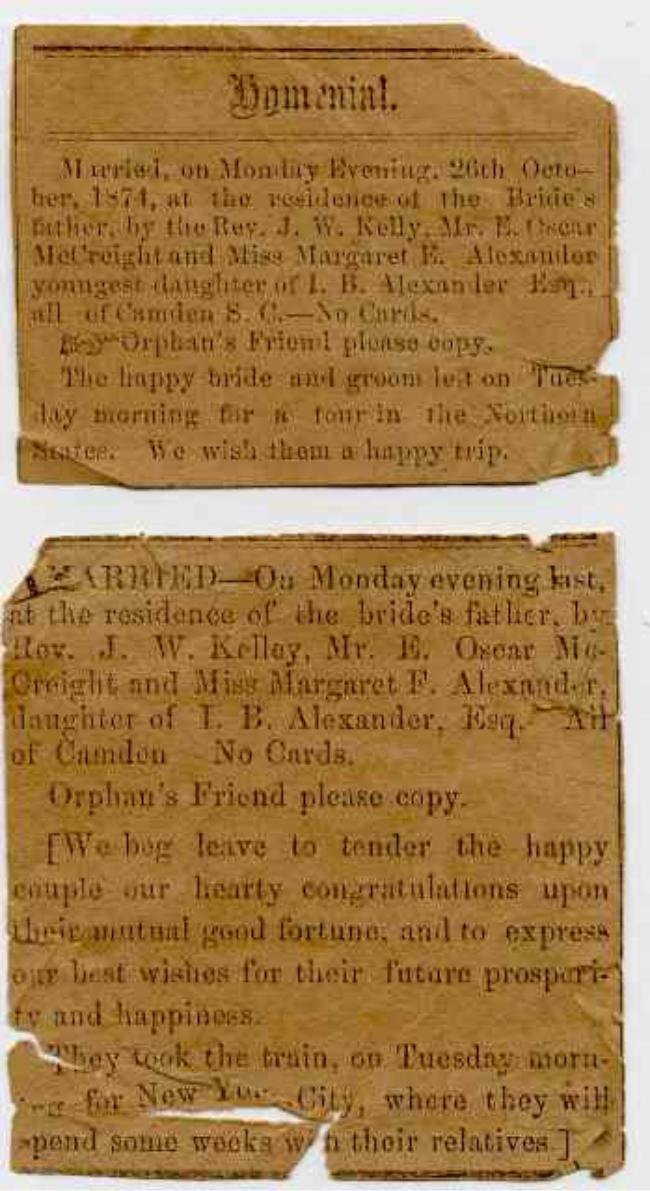 Hymenial.
Married, on Monday Evening, 26th Octo-
ber, 1874, at the residence of the Bride's
father, by the Rev. J. W. Kelly, Mr. E. Oscar
McCreight and Miss Margaret E. Alexander
youngest daughter of I. B. Alexander Esq.,
all of Camden S. C.—No Cards.
Orphan's Friend please copy.
The happy bride and groom left on Tues-
day morning for a tour in the Northern
States. We wish them a happy trip.
MARRIED—On Monday evening last,
at the residence of the bride's father, by
Rev. J. W. Kelley, Mr. E. Oscar Mc-
Creight and Miss Margaret F. Alexander,
daughter of I. B. Alexander, Esq. All
of Camden No Cards.
Orphan's Friend please copy.
[We beg leave to tender the happy
couple our hearty congratulations upon
their mutual good fortune, and to express
our best wishes for their future prosperi-
ty and happiness.
They took the train, on Tuesday morn-
for New City, where they will
spend some weeks their relatives ]